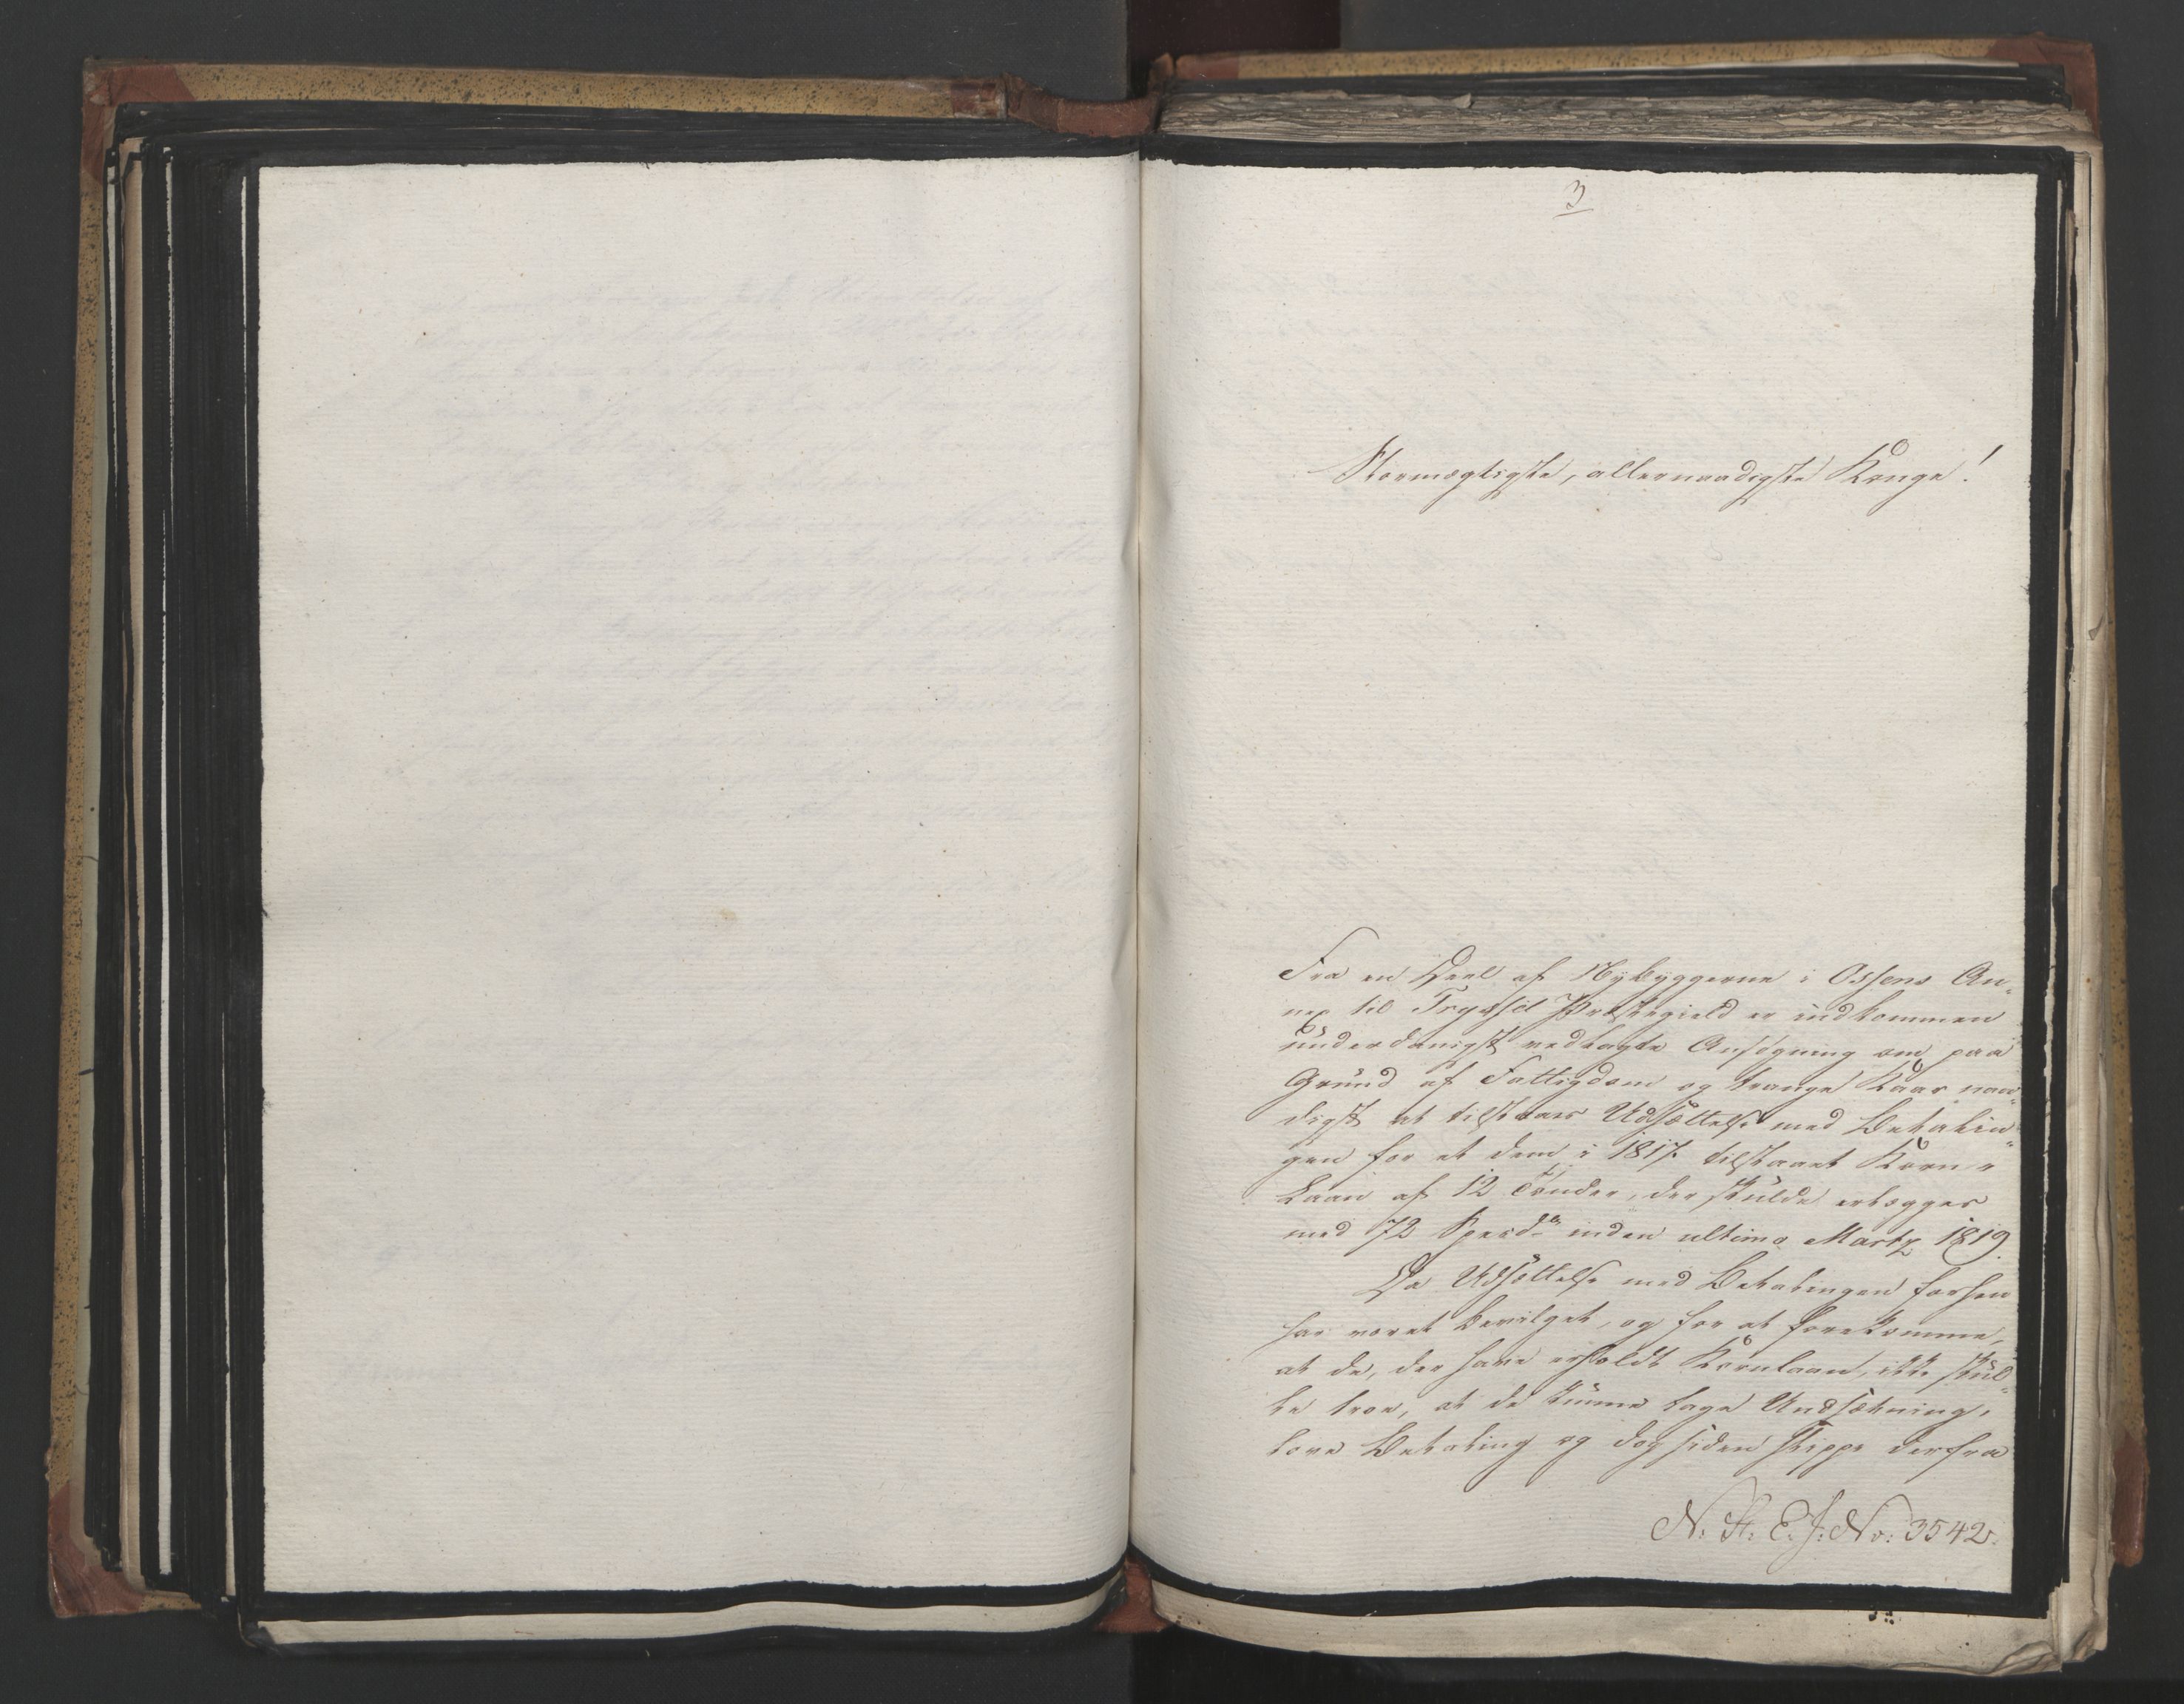 3
Stormægtigste, allernaadigste Konge!
Fra en Deel af Nybyggerne i Ossens An-
nex til Tryssil Præstegield er indkommen
underdanigst vedlagte Ansøgning om paa
Grund af Fattigdom og trange Kaar naa-
digst at tilstaaes Udsættelse med Betalin-
gen for et dem i 1817 tilstaaet Korn-
Laan af 12 Tønder, der skulde erlægges
med 72 Spesdr inden ultimo Martz 1819.
Da Udsættelse med Betalingen forhen
har været bevilget, og for at forekomme,
at de, der have erholdt Kornlaan, ikke skul-
le troe, at de kunne tage Undsætning,
love Betaling og dog siden slippe derfra
N: St: E. J: No: 3542.